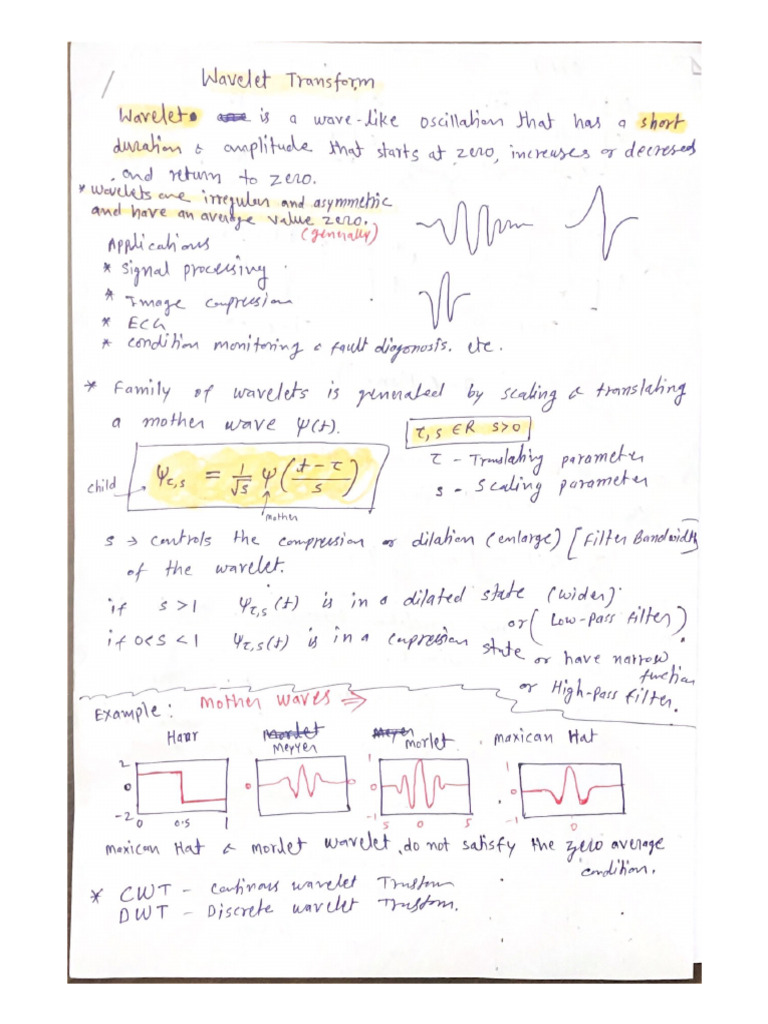 Wavelet Transform
Wavelet is a wave-like oscillation that has a short
duration & amplitude that starts at zero, increases or decreses
and return to zero.
* wavelets are irregular and asymmetric
and have an average value zero.
(generally)
Applications
* Signal processing
* Image compression
* ECG
* condition monitoring & fault diagonosis. etc.
* Family of wavelets is generated by scaling & translating
a mother wave ψ(t).
τ, s ∈ R s>0
τ - Translating parameter
s - Scaling parameter
child
ψτ,s = 1/√s ψ((t-τ)/s)
mother
s → controls the compression or dilation (enlarge) [Filter Bandwidth]
of the wavelet.
if s>1 ψτ,s(t) is in a dilated state (wider).
or (Low-pass filter)
if 0<s<1 ψτ,s(t) is in a compression state or have narrow
function
or High-pass filter.
Example: Mother waves ⇒
Haar Meyyer morlet maxican Hat
2
0
-2
0 0.5 1
0 0
1
0
-1
-5 0 5
1
-1
0
maxican Hat & morlet wavelet, do not satisfy the zero average
condition.
* CWT - continous wavelet Trnsform
DWT - Discrete wavelet Trnsform.